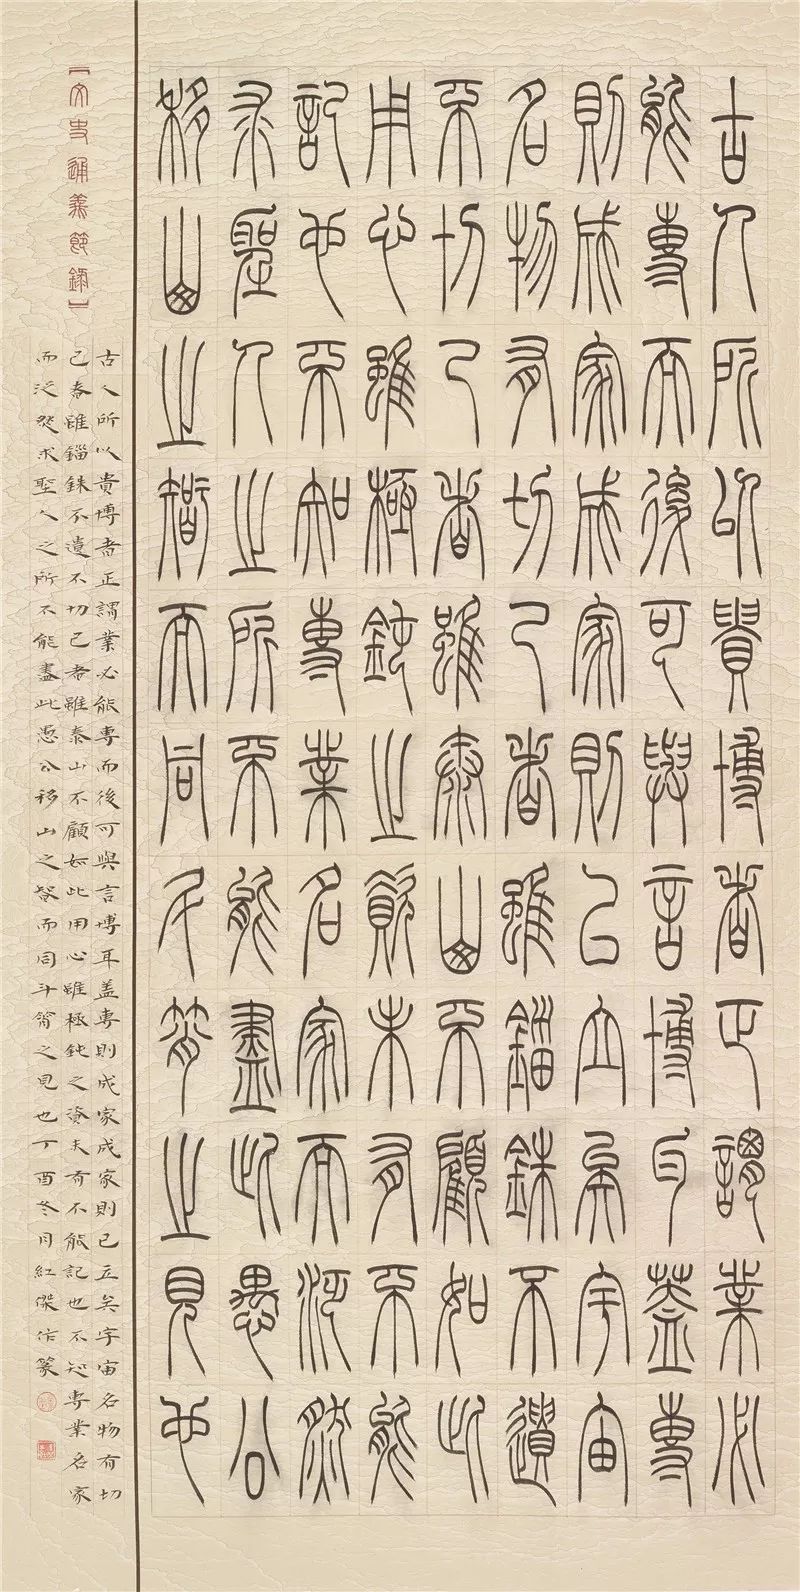 古人所以貴博者正謂業必
能專而後可與言博耳蓋專
則成家成家則己立矣宇宙
名物有切己者雖錙銖不遺
不切己者雖泰山不顧如此
用心雖極鈍之資未有不能
記也不知專業名家而泛然
求聖人之所不能盡此愚公
移山之智而同斗筲之見也
【文史通義節錄】
古人所以貴博者正謂業必能專而後可與言博耳盖專則成家成家則已立矣宇宙名物有切
己者雖錙銖不遺不切己者雖泰山不顧如此用心雖極鈍之資未有不能記也不知專業名家
而泛然求聖人之所不能盡此愚公移山之智而同斗筲之見也丁酉冬月紅傑作篆